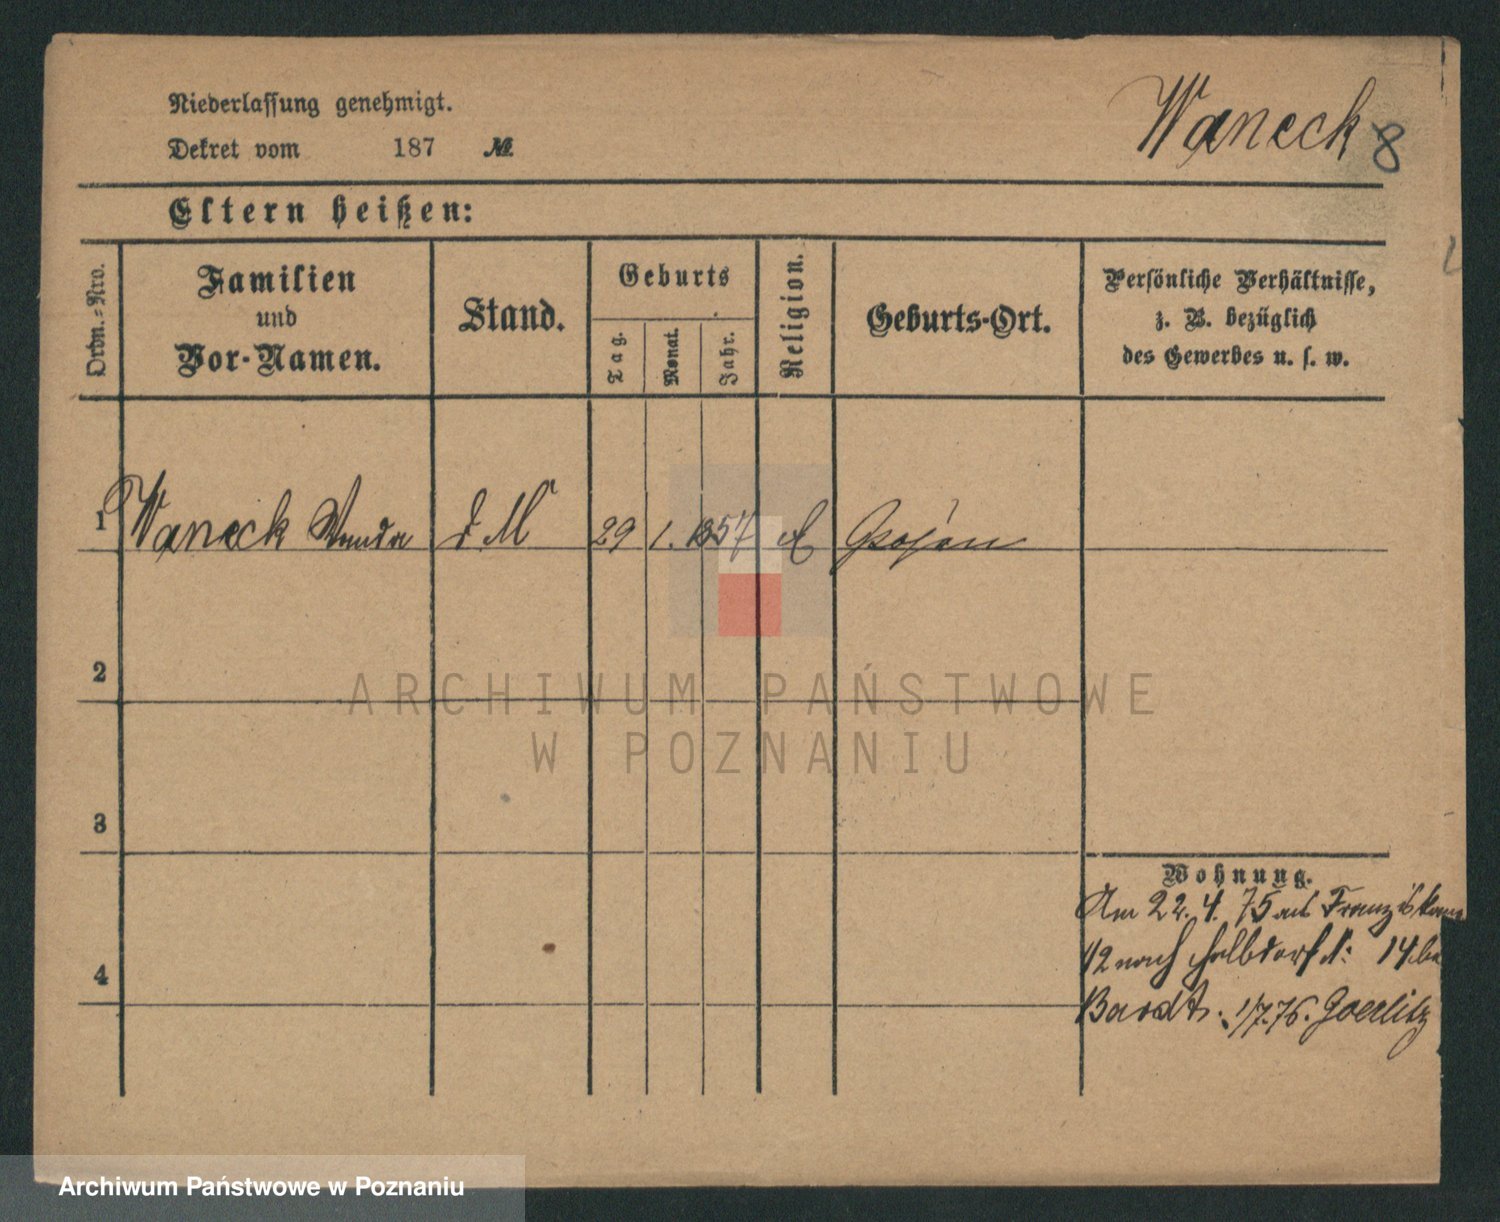 Niederlassung genehmigt.
Dekret vom 187 №
Waneck 8
Eltern heißen:
Ordn.-Nro.
Familien
und
Vor-Namen.
Stand.
Geburts
Tag.
Monat.
Jahr.
Religion.
Geburts-Ort.
Persönliche Verhältnisse,
z. B. bezüglich
des Gewerbes u. s. w.
1 Waneck Wanda d. M 29 1. 1857
2
3
4
Wohnung.
Am 22. 4. 75 aus
12 nach Halbdorfst: 14 bei
Bardt. 1/7.76. Goerlitz
ARCHIWUM PAŃSTWOWE
W POZNANIU
Archiwum Państwowe w Poznaniu